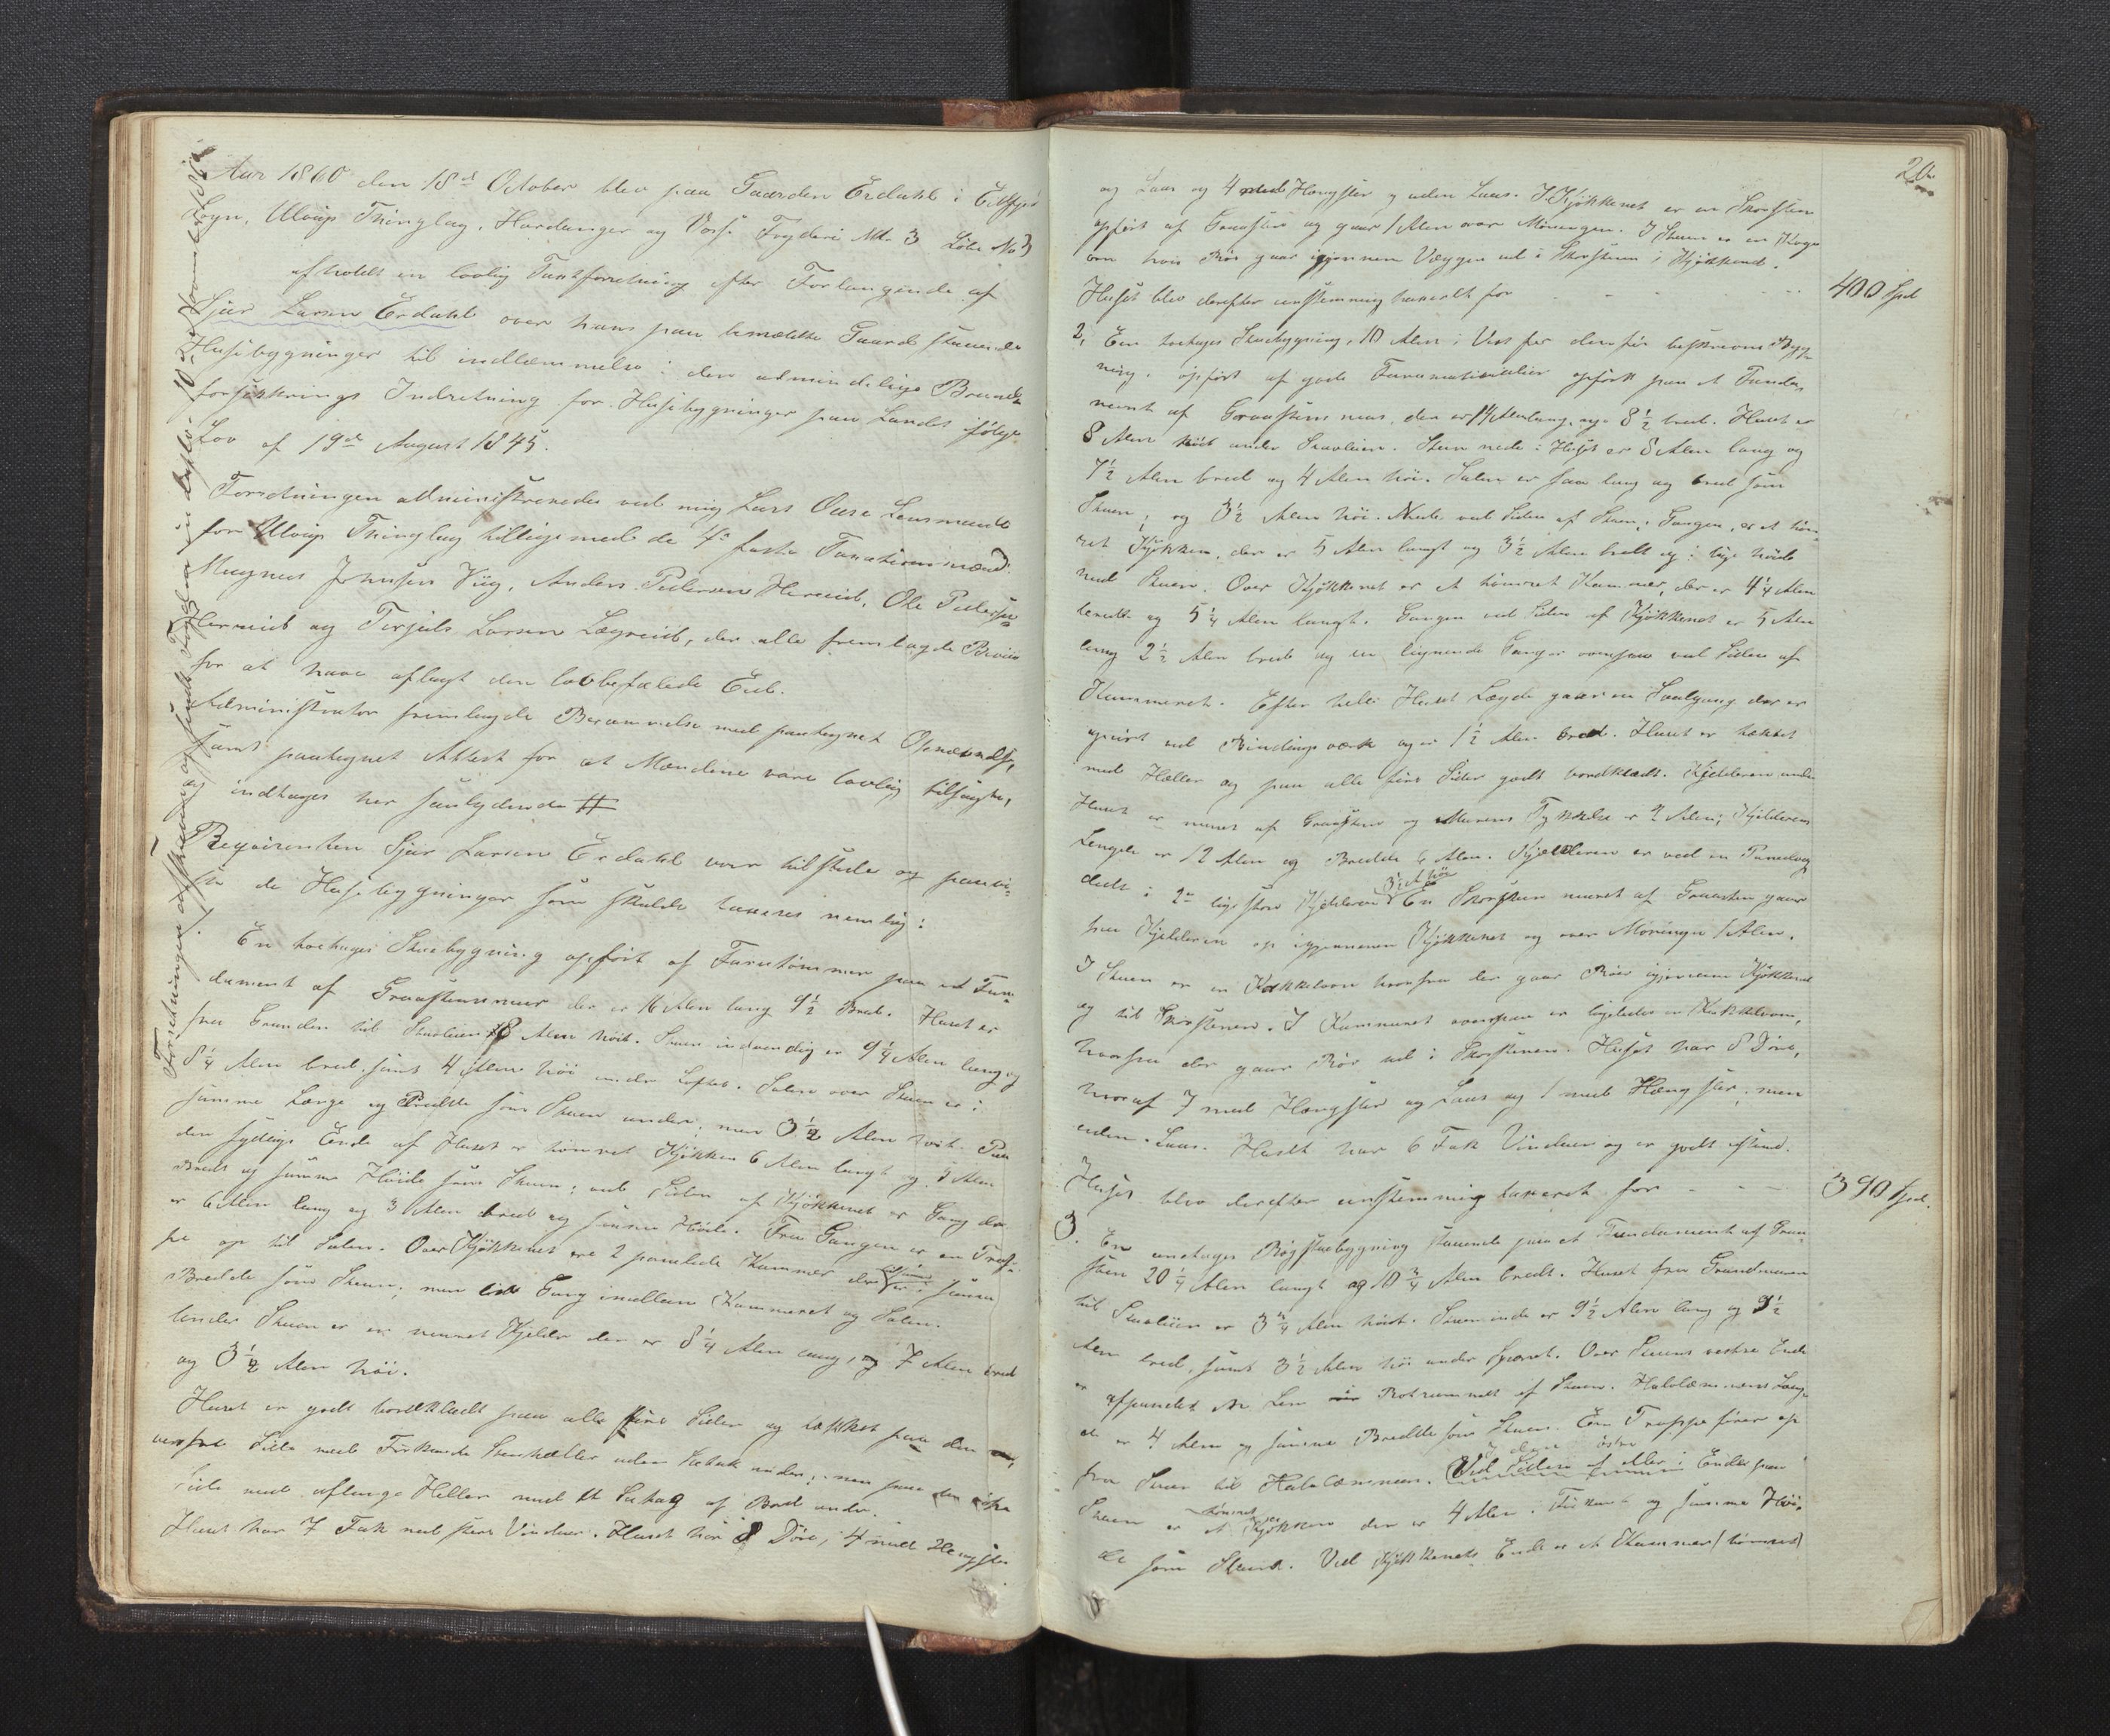 Aar 1860 den 18de October blev paa Gaarden Erdahl i Eidfjords
Sogn, Ulviigs Thinglag, Hardanger og Vosse Fogderi Mt. 3 Løbe No 3
afholdt en lovlig Taxtforretning efter Forlangende af
Sjur Larsen Erdahl over hans paa bemældte Gaard staaende
Husebygninger til indlemmelse i den almindelige Brand-
forsikkrings Indretning for Husebygninger paa Landet ifølge
Lov af 19de August 1845.
Forretningen administreredes ved mig Lars Lensmand
for Ulvigs Thinglag tilligemed de 4re faste Taxationsmænd:
Magnus Johnsen Viig, Anders Pedersen Hereid, Ole Pedersen
Hereid og Torjuls Larsen Lægreid, der alle fremlagde Beviis
for at have aflagt den lovbefalede Eed.
Administrator fremlagde Berammelse med paategnet Opnævnelse,
samt paategnet Attest for at Mændene vare lovlig tilsagte,
og indtages her saalydende #
Requirenten Sjur Larsen Erdahl var tilstede og paavi-
ste de Husebygninger som skulde taxeres nemlig:
1. En toetages Stuebygning opført af Furutømmer paa et Fun-
dament af Graasteensmuur der er 16 Alen lang 9½ Bred. Huset er
fra Grunden til Stavleien 8 Alen høit. Stuen indvendig er 9¼ Alen lang og
8¼ Alen bred samt 4 Alen høi under Loftet. Salen over Stuen er i
samme Længe og Bredde som Stuen under; men 3½ Alen høit. Paa
den sydlige Ende af Huset er tømret Kjøkken 6 Alen langt og 5 Alen
Bredt og samme Høide som Stuen; ved Siden af Kjøkkenet er Gang der
er 6 Alen lang og 3 Alen bred og samme Høide. Fra Gangen er en Trap-
pe op til Salen. Over Kjøkkenet ere 2 panelede Kammer der er i samme
Bredde som Stuen; men lidt Gang imellem Kammeret og Salen.
Under Stuen er en muret Kjelder der er 8¼ Alen lang, og 7 Alen bred
og 3½ Alen høi.
Huset er godt bordklædt paa alle fire Sider og tækket paa den
vestre Side med Firkantede Steenheller uden Sutak under, men paa den østre
Side med aflange Heller med et Sutag af Bord under.
Huset har 7 Fak med store Vinduer. Huset har 8 Døre, 4 med Hængsler
Forretningen afskrevet og sendt Fogden in duplo 10de November 1860
20
og Laas og 4 med Hængsler og uden Laas. I Kjøkkenet er en Skorsteen
opført af Graasteen og gaar 1 Alen over Møningen. I Stuen er en Kogeo
ovn hvis Rør gaar igjennem Væggen ud i Skorstenen i Kjøkkenet.
Huset blev derefter eenstemmig taxeret for - - - - 400 Spd
2, Een toetages Stuebygning, 10 Alen i Vest for den før beskrevne Byg-
ning. opført af gode Furumaterialier opført paa et Funda-
ment af Graasteens muur, den er 14 Alen lang, og 8½ bred. Huset er
8 Alen høit under Stavleien. Stuen nede i Huset er 8 Alen lang og
7½ Alen bred og 4 Alen høi. Salen er saa lang og bred som
Stuen, og 3½ Alen høi. Nede ved Siden af Stuen, i Gangen, er et tøm-
ret Kjøkken, der er 5 Alen langt og 3½ Alen bredt og i lige høide
med Stuen. Over Kjøkkenet er et tømret Kammer, der er 4¼ Alen
bredt og 5¼ Alen langt. Gangen ved Siden af Kjøkkenet er 5 Alen
lang 2½ Alen bred og en lignende Gang er ovenpaa ved Siden af
Kammeret. Efter hele Huset Længde gaar en Svalgang der er
opreist ved Bindingsværk og er 1½ Alen bred. Huset er tækket
med Heller og paa alle fire Sider godt bordklædt. Kjelderen under
Huset er muret af Graasteen og Murens Tykkelse er 2 Alen; Kjelderens
Længde er 12 Alen og Bredde 6 Alen. Kjælderen er ved en Panelvæg
deelt i 2de lige store Kjelderen 3½ Al. høi En Skorsteen muret af Graasteen gaar
fra Kjelderen op igjennem Kjøkkenet og over Møningen 1 Alen.
I Stuen er en Kakkelovn hvorfra der gaar Røer igjennem Kjøkkenet
og til Skorstenen. I Kammeret ovenpaa er ligeledes en Kakkelovn,
hvorfra der gaar Rør ud i Skorstenen. Huset har 8 Døre,
hvoraf 7 med Hængsler og Laas og 1 med Hængsler, men
uden Laas. Huset har 6 Fak Vinduer og er godt istand.
Huset blev derefter eenstemmig taxeret for - - - 390 Spd.
3. En eenetages Røgstuebygning staaende paa et Fundament af Graa-
steen 20¼ Alen langt og 10¾ Alen bredt. Huset fra Grundmuren
til Stavleien er 3¾ Alen høit. Stuen inde er 9½ Alen lang og 9½
Alen bred, samt 3½ Alen høi under Sparret. Over Stuens vestre Ende
er afpanelet en Lem Rotrummet af Stuen. Halvlæmmens Læng-
de er 4 Alen og samme Bredde som Stuen. Een Trappe fører op
fra Stuen til Halvlæmmen. Ved Siden af eller i I den østre Ende paa
Stuen er et tømret Kjøkken der er 4 Alen i Firkant og samme Høi-
de som Stuen. Ved Kjøkkenets Ende er et Kammer (tømret)